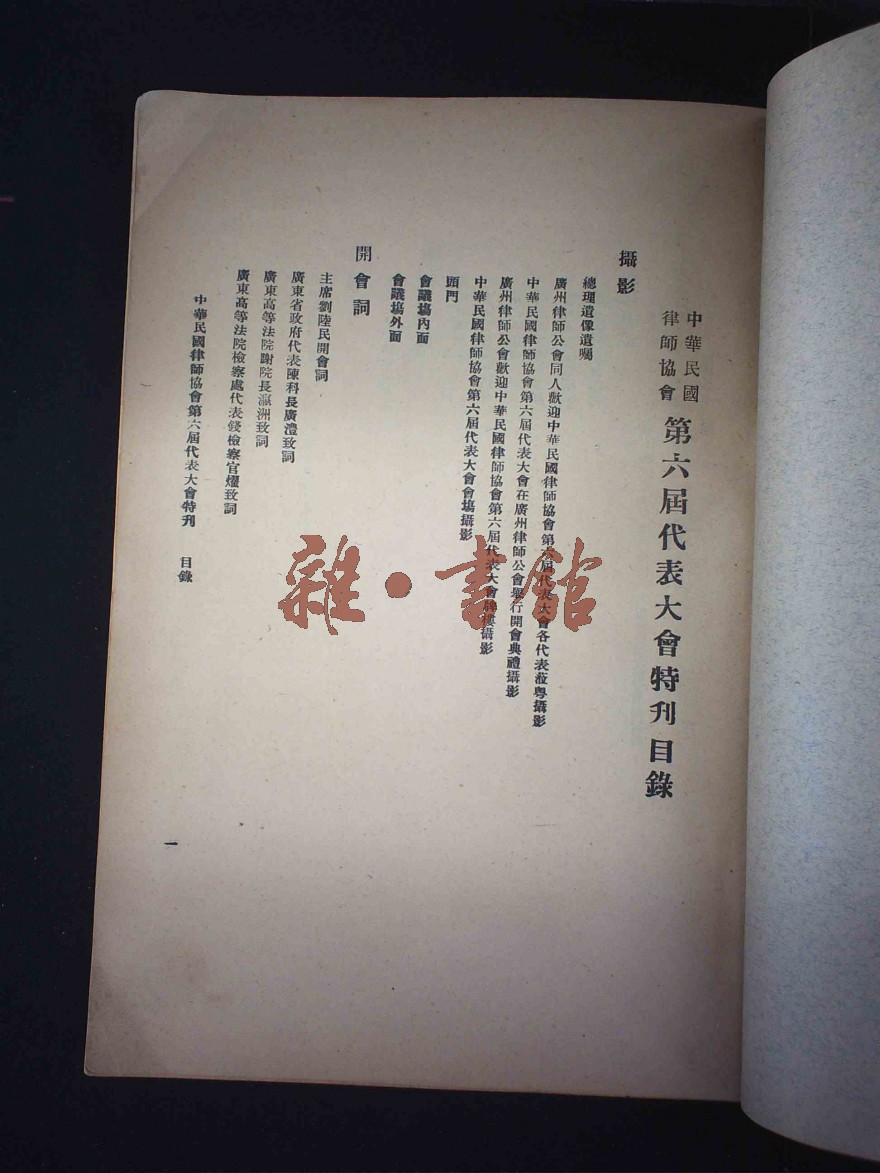 中華民國
律師協會
第六屆代表大會特刊目錄
攝影
總理遺像遺囑
廣州律師公會同人歡迎中華民國律師協會第六屆代表大會各代表蒞粵攝影
中華民國律師協會第六屆代表大會在廣州律師公會舉行開會典禮攝影
廣州律師公會歡迎中華民國律師協會第六屆代表大會牌樓攝影
中華民國律師協會第六屆代表大會會塲攝影
頭門
會議塲內面
會議塲外面
開會詞
主席劉陸民開會詞
廣東省政府代表陳科長廣澧致詞
廣東高等法院謝院長瀛洲致詞
廣東高等法院檢察處代表錢檢察官燿致詞
中華民國律師協會第六屆代表大會特刊 目錄
一
雜·書館